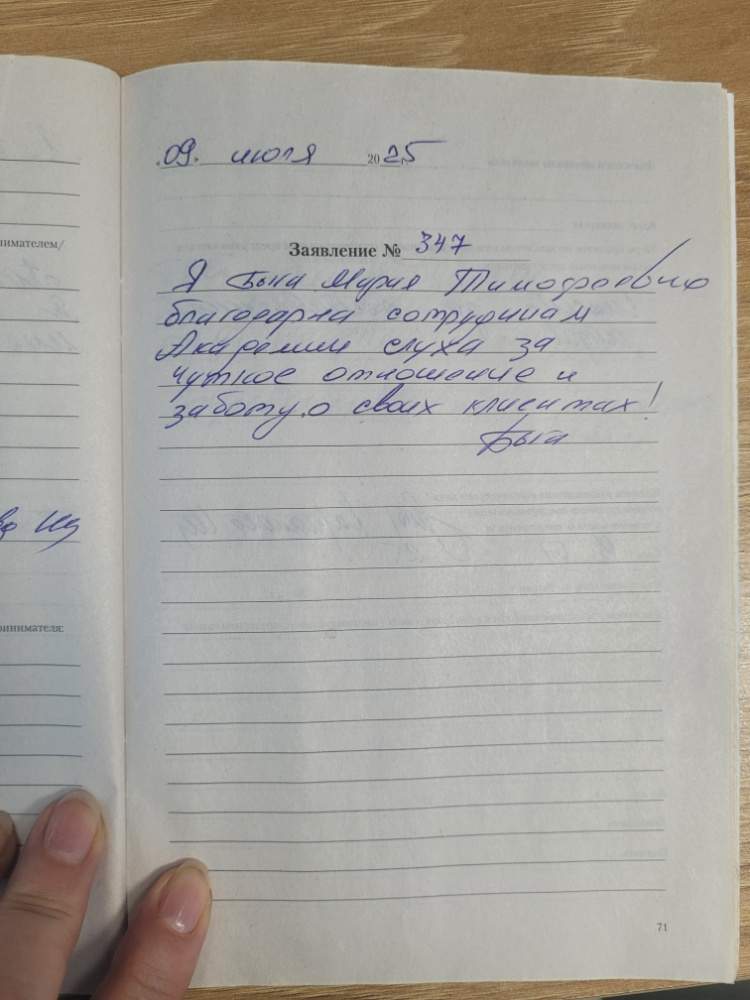 09. июля 2025
Заявление № 347
Я Быка Мария Тимофеевна
благодарна сотрудникам
Академии слуха за
чуткое отношение и
заботу о своих клиентах!
нимателем/
ринимателя:
71